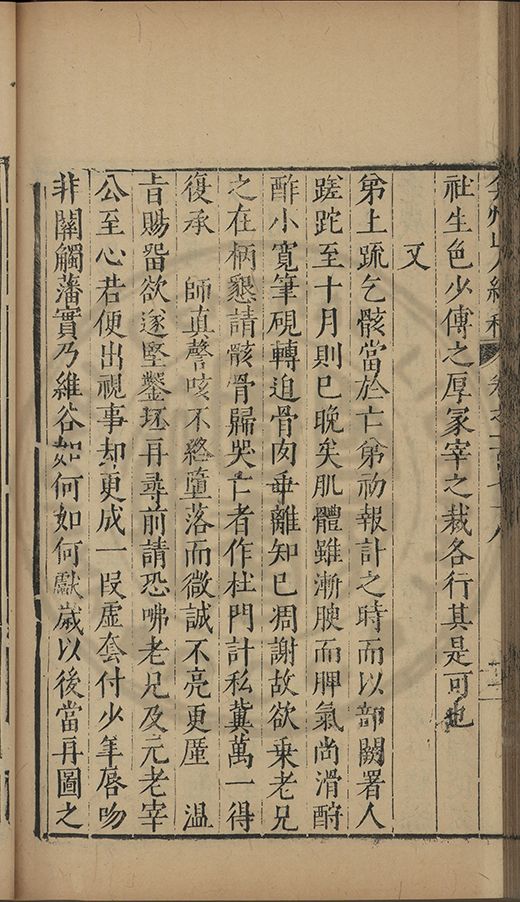 社生色少傳之厚冢宰之裁各行其是可也
又
弟上疏乞骸當於亡弟初報訃之時而以部闕署人
蹉跎至十月則已晚矣肌體雖漸腴而脾氣尚滑酧
酢小寬筆硯轉迫骨肉乖離知已凋謝故欲乗老兄
之在柄懇請骸骨歸哭亡者作杜門計私冀萬一得
復承 師真謦咳不終墮落而微誠不亮更厪 溫
旨賜畱欲逐堅鑿坯再尋前請恐咈老兄及元老宰
公至心若便出視事却更成一叚虛套付少年唇吻
非闌觸藩實乃維谷如何如何獻歲以後當再圖之